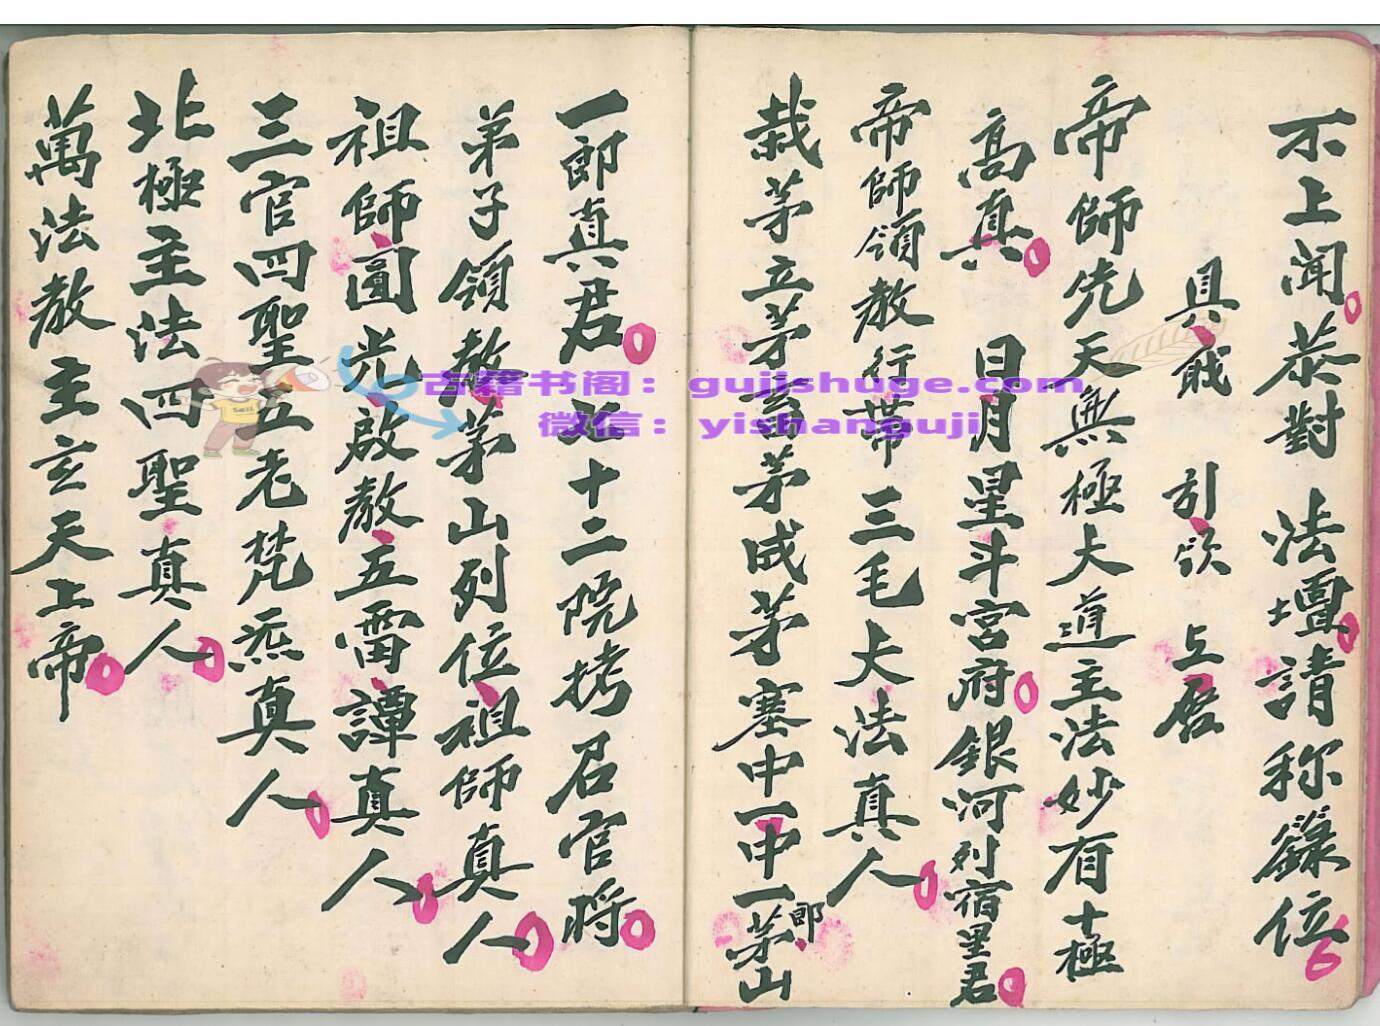 不上聞恭對 法壇請称籙位
具戝 引欱 上啓
帝師先天無極大道主法妙有十極
高真 日月星斗宮府銀河列宿星君
帝師領教行帶三毛大法真人
栽茅立茅畜茅成茅塞中一中一郎茅山
一郎真君 七十二院拷召官将
弟子領教茅山列位祖師真人
祖師圓光啟教五雷譚真人
三官四聖五老梵炁真人
北極主法四聖真人
萬法教主玄天上帝
古籍书阁：gujishuge.com
微信：yishanguji